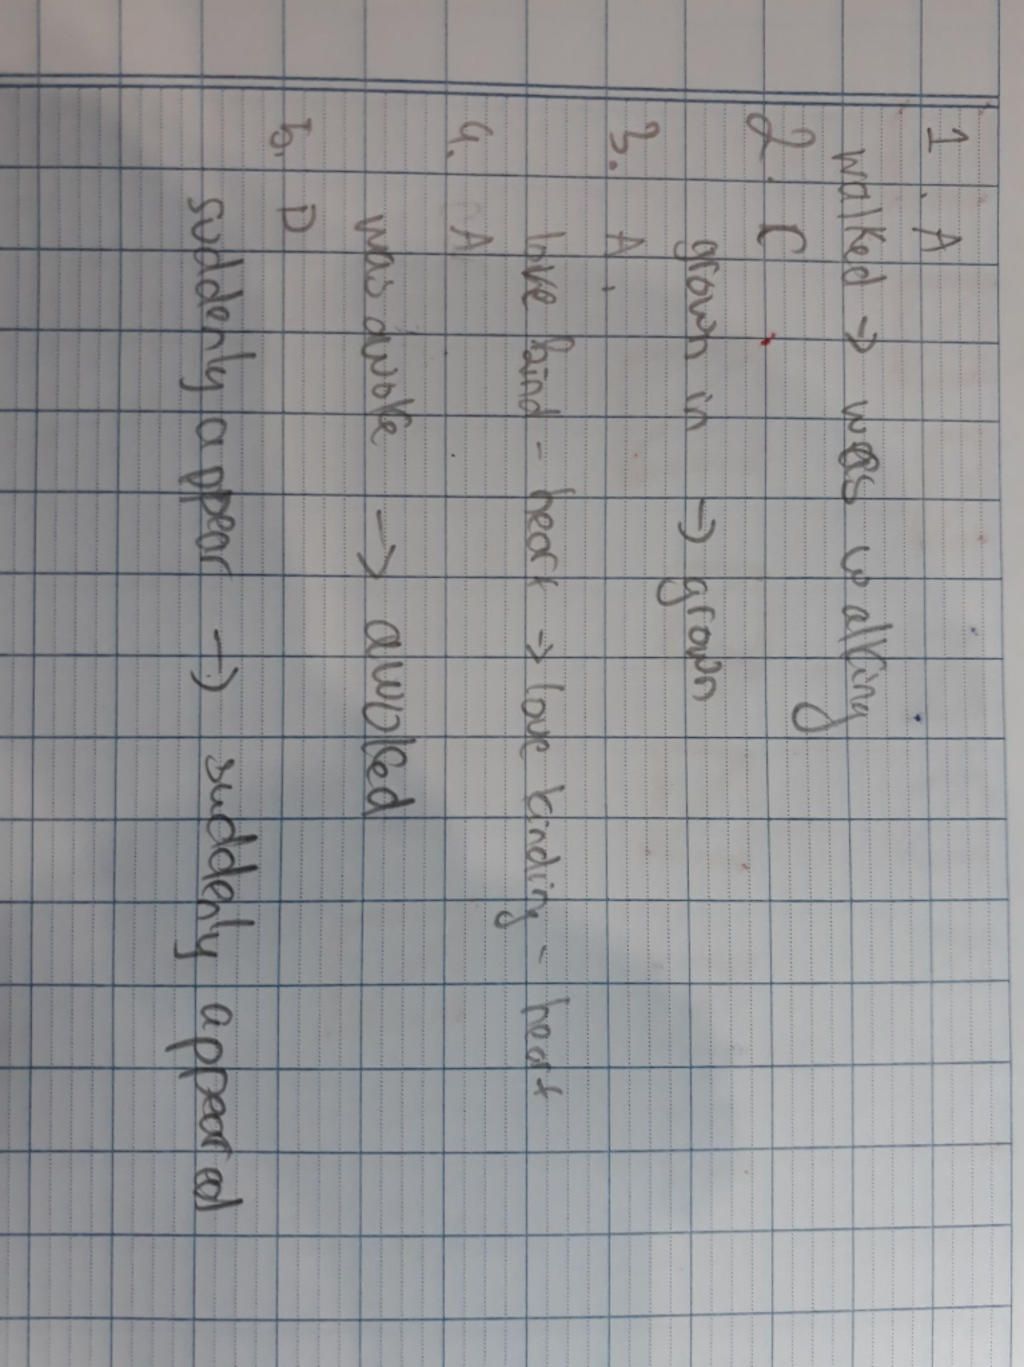 1. A
walked → was walking
2. C
grown in → grown
3. A.
love kind - heart → love kinding - heart
4. A
was awoke → awoked
5. D
suddenly appear → suddenly appeared